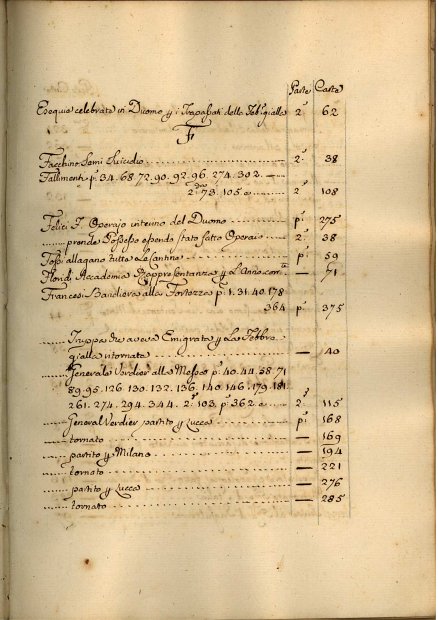 Parte Carte
Esequie celebrate in Duomo p i Trapassati della Feb. gialla 2ª 62
F
Facchino Semi Suicidio 2ª 38
Fallimenti pª 34. 68. 72. 90. 92. 96. 274. 302. —
2ª 73. 105 e 2ª 108
Felici F. Operajo interino del Duomo pª 275
prende Possesso essendo stato fatto Operaio 2ª 38
Fossi allagano tutte le Cantine pª 59
Floridi Accademia Rappresentanza — 71
Francesi Bandiera alla Fortezza pª 1. 31. 40. 178
364 pª 375
Truppa che aveva Emigrato p La Febbre
gialla ritornata — 40
Generale Verdier alla Messa pª 40. 44. 58. 71
89. 95. 126. 130. 132. 136. 140. 146. 179. 181
261. 274. 294. 344. 2ª 103. pª 362 e 2ª 115
General Verdier partito p Lucca pª 168
tornato — 169
partito p Milano — 194
tornato — 221
partito p Lucca — 276
tornato — 285